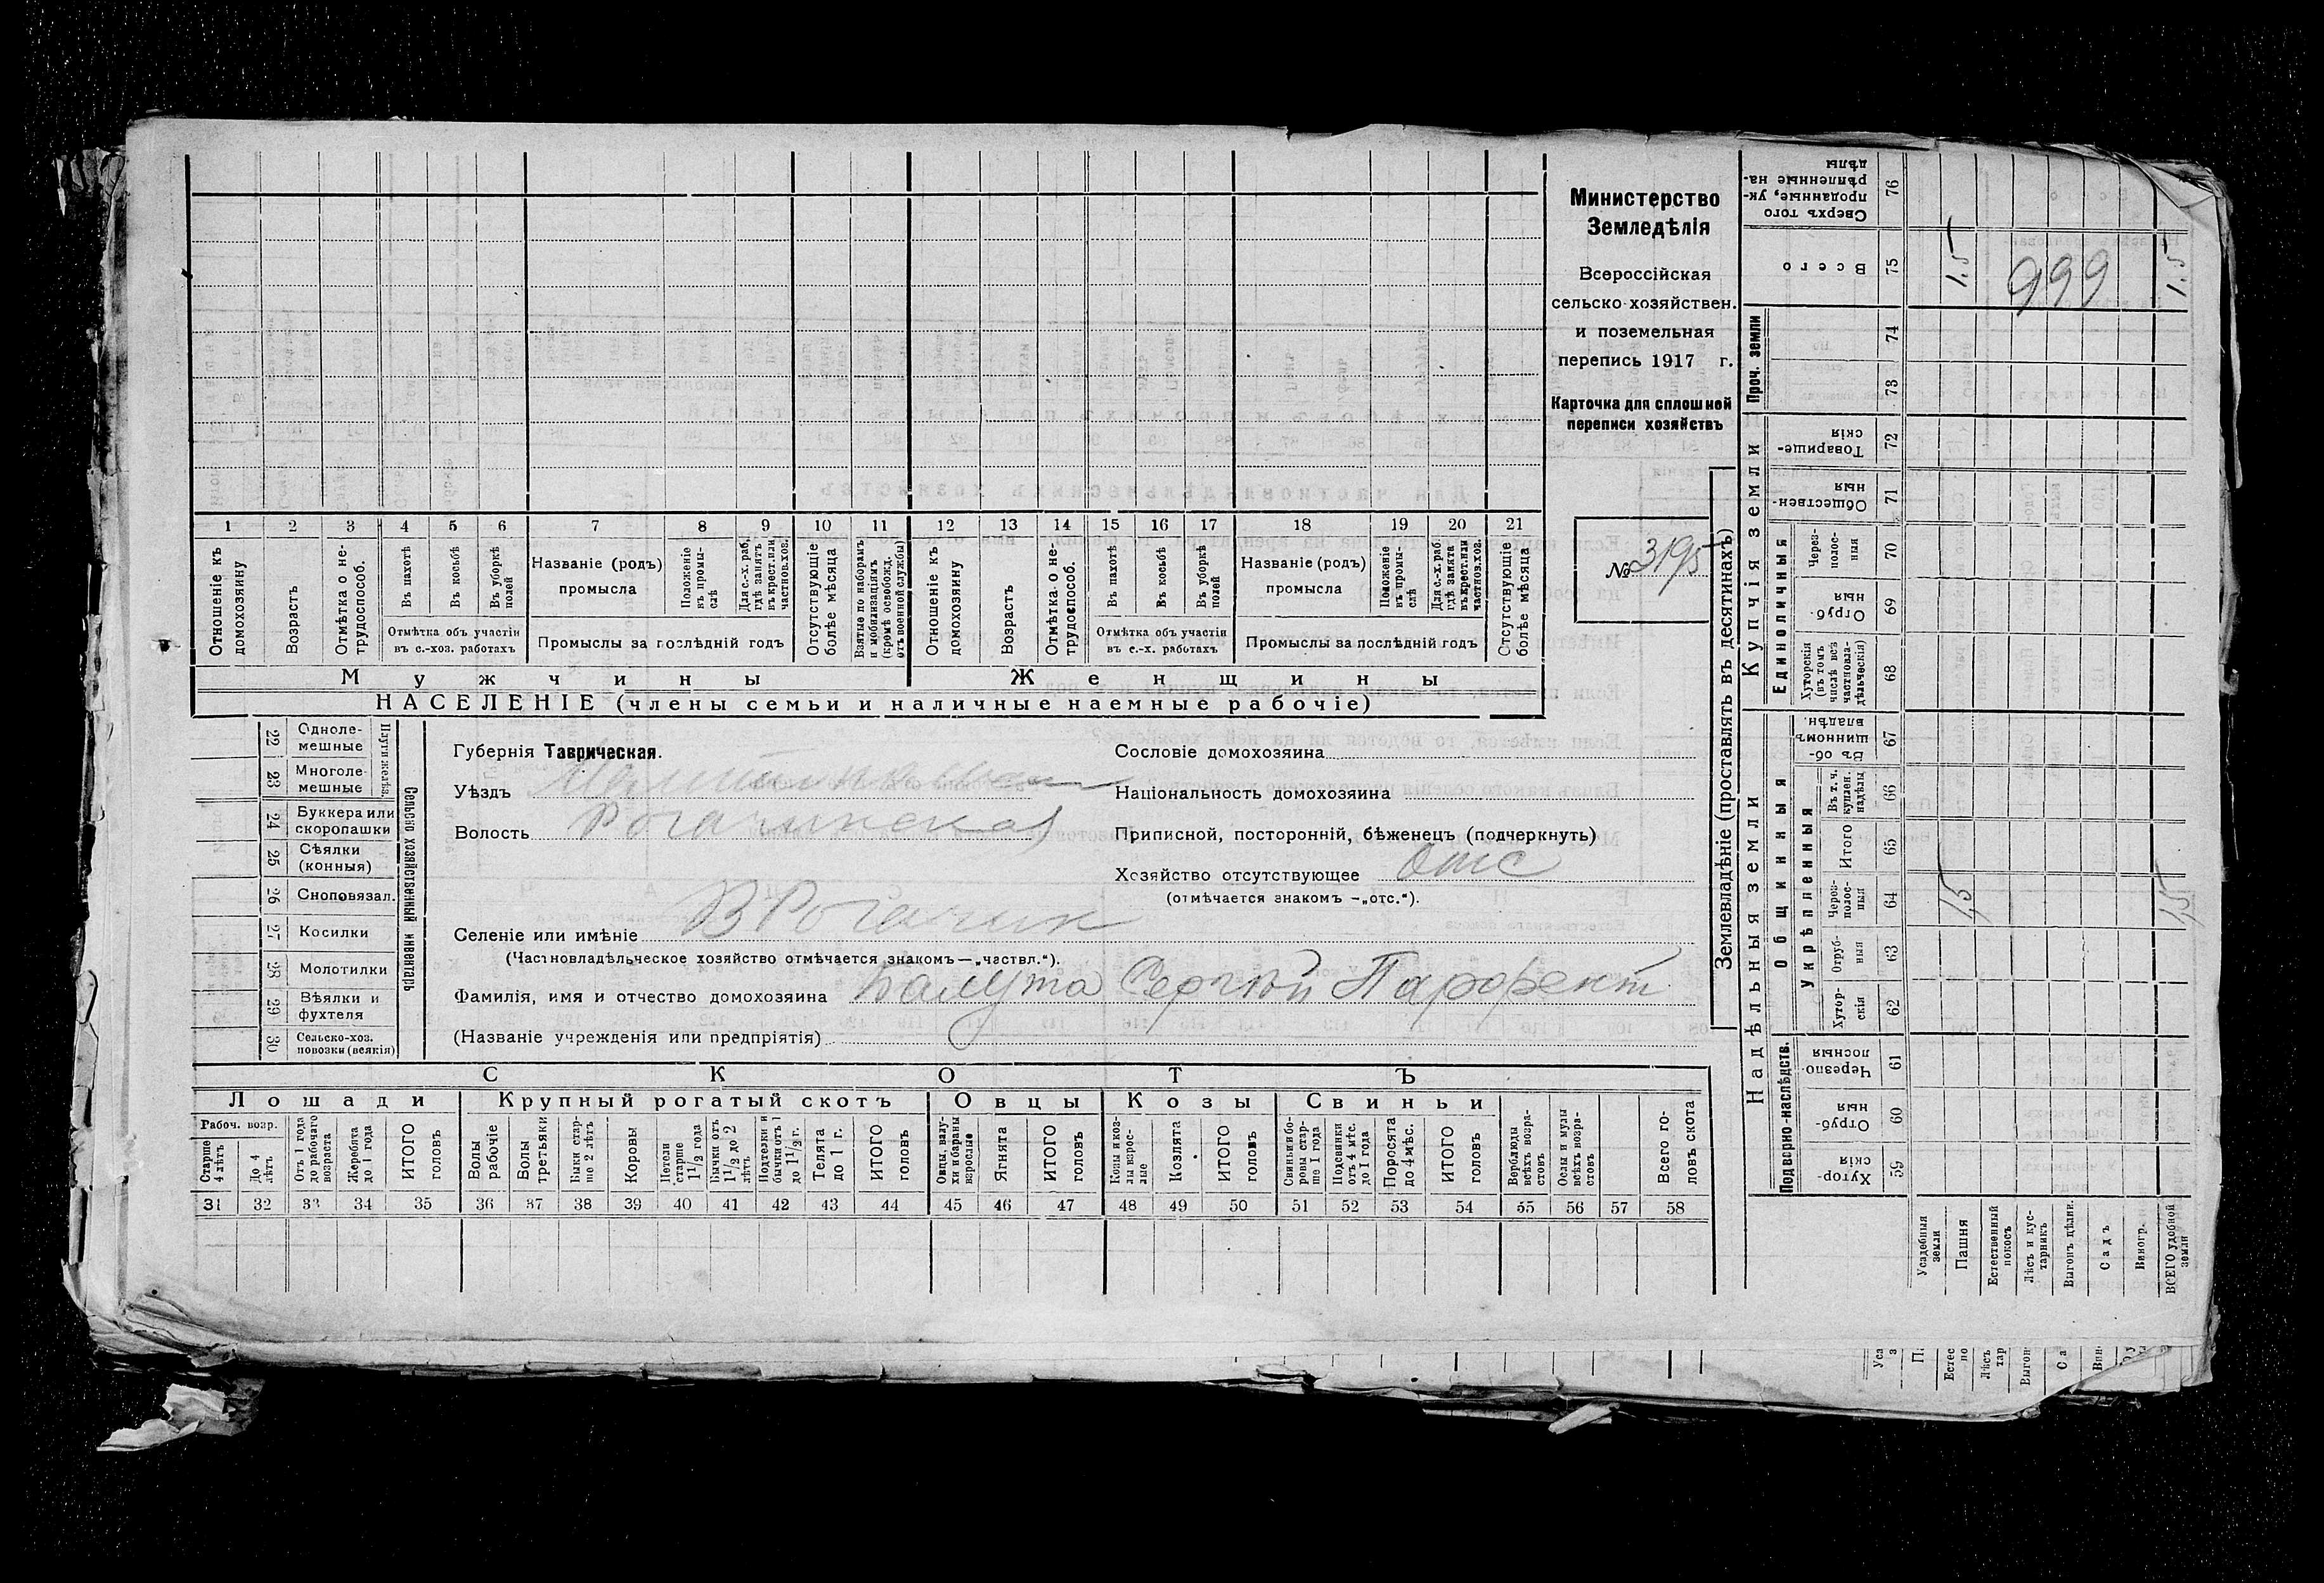 Министерство
Земледѣлія
Всероссійская
сельско-хозяйствен.
и поземельная
перепись 1917 г.
Карточка для сплошной
переписи хозяйствъ
№ 3195
1 2 3 4 5 6 7 8 9 10 11 12 13 14 15 16 17 18 19 20 21
Отношеніе къ домохозяину
Возрастъ
Отмѣтка о не-трудоспособ.
Въ пахотѣ
Въ косьбѣ
Въ уборкѣ полей
Отмѣтка объ участіи въ с.-хоз. работахъ
Названіе (родъ) промысла
Положеніе въ промы-слѣ
Для с.-х. раб. гдѣ занятъ въ крест. или частнов. хоз.
Промыслы за послѣдній годъ
Отсутствующіе болѣе мѣсяца
Взятые по наборамъ и мобилизаціямъ (кромѣ освобожд. отъ военной службы)
Отношеніе къ домохозяину
Возрастъ
Отмѣтка о не-трудоспособ.
Въ пахотѣ
Въ косьбѣ
Въ уборкѣ полей
Отмѣтка объ участіи въ с.-х. работахъ
Названіе (родъ) промысла
Положеніе въ промы-слѣ
Для с.-х. раб. гдѣ занята въ крест. или частнов. хоз.
Промыслы за послѣдній годъ
Отсутствующіе болѣе мѣсяца
Мужчины Женщины
НАСЕЛЕНІЕ (члены семьи и наличные наемные рабочіе)
Сельско хозяйственный инвентарь
Плуги желѣз.
22 Одноле-мешные
23 Многоле-мешные
24 Буккера или скоропашки
25 Сѣялки (конныя)
26 Сноповязал.
27 Косилки
28 Молотилки
29 Вѣялки и фухтеля
30 Сельско-хоз. повозки (всякія)
Губернія Таврическая.
Уѣздъ
Волость Рогачинская
Сословіе домохозяина
Національность домохозяина
Приписной, посторонній, бѣженецъ (подчеркнуть)
Хозяйство отсутствующее отс
(отмѣчается знакомъ —„отс.“).
Селеніе или имѣніе В Рогачик
(Частновладѣльческое хозяйство отмѣчается знакомъ—„частвл.“).
Фамилія, имя и отчество домохозяина Балута Сергій Парфент
(Названіе учрежденія или предпріятія)
СКОТЪ
Лошади Крупный рогатый скотъ Овцы Козы Свиньи
Рабоч. возр.
Старше 4 лѣтъ
До 4 лѣтъ
Отъ 1 года до рабочаго возраста
Жеребята до 1 года
ИТОГО головъ
Волы рабочіе
Волы третьяки
Быки стар-ше 2 лѣтъ
Коровы
Нетели старше 1½ года
Бычки отъ 1½ до 2 лѣтъ
Подтелки и бычки отъ 1 до 1½ г.
Телята до 1 г.
ИТОГО головъ
Овцы, валу-хи и бараны взрослые
Ягнята
ИТОГО головъ
Козы и коз-лы взрос-лые
Козлята
ИТОГО головъ
Свиньи и бо-ровы стар-ше 1 года
Подсвинки отъ 4 мѣс. до 1 года
Поросята до 4 мѣс.
ИТОГО головъ
Верблюды всѣхъ возра-стовъ
Ослы и мулы всѣхъ возра-стовъ
Всего го-ловъ скота
31 32 33 34 35 36 37 38 39 40 41 42 43 44 45 46 47 48 49 50 51 52 53 54 55 56 57 58
Землевладѣніе (проставлять въ десятинахъ)
Надѣльныя земли Купчія земли Проч. земли
Подворно-наслѣдств.
Общинныя
Укрѣпленныя
Единоличныя
59 Хутор-скія
60 Отруб-ныя
61 Черезпо-лосныя
62 Хутор-скія
63 Отруб-ныя
64 Через-полос-ныя
65 Итого
66 Въ т. ч. куплен. надѣлы
67 Въ об-щинномъ владѣн.
68 Хуторскія (въ томъ числѣ всѣ частновла-дѣльческія)
69 Отруб-ныя
70 Через-полос-ныя
71 Обществен-ныя
72 Товарище-скія
73
74
75 Всего
76 Сверхъ того проданные, ук-рѣпленные на-дѣлы
Усадебныя земли
Пашня 1,5 1.5
Естественный покосъ
Лѣсъ и кус-тарникъ
Выгонъ цѣлин.
Садъ
Виногр.
ВСЕГО удобной земли 1,5 1.5
999